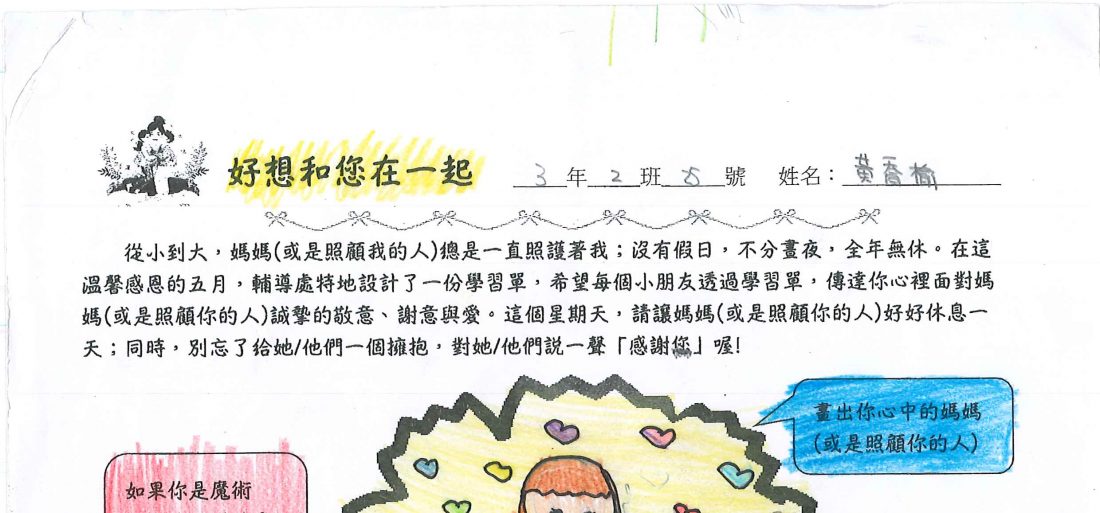 好想和您在一起 3年2班 5號 姓名:黃喬榆
從小到大,媽媽(或是照顧我的人)總是一直照護著我;沒有假日,不分晝夜,全年無休。在這
溫馨感恩的五月,輔導處特地設計了一份學習單,希望每個小朋友透過學習單,傳達你心裡面對媽
媽(或是照顧你的人)誠摯的敬意、謝意與愛。這個星期天,請讓媽媽(或是照顧你的人)好好休息一
天;同時,別忘了給她/他們一個擁抱,對她/他們說一聲「感謝您」喔!
畫出你心中的媽媽
(或是照顧你的人)
如果你是魔術